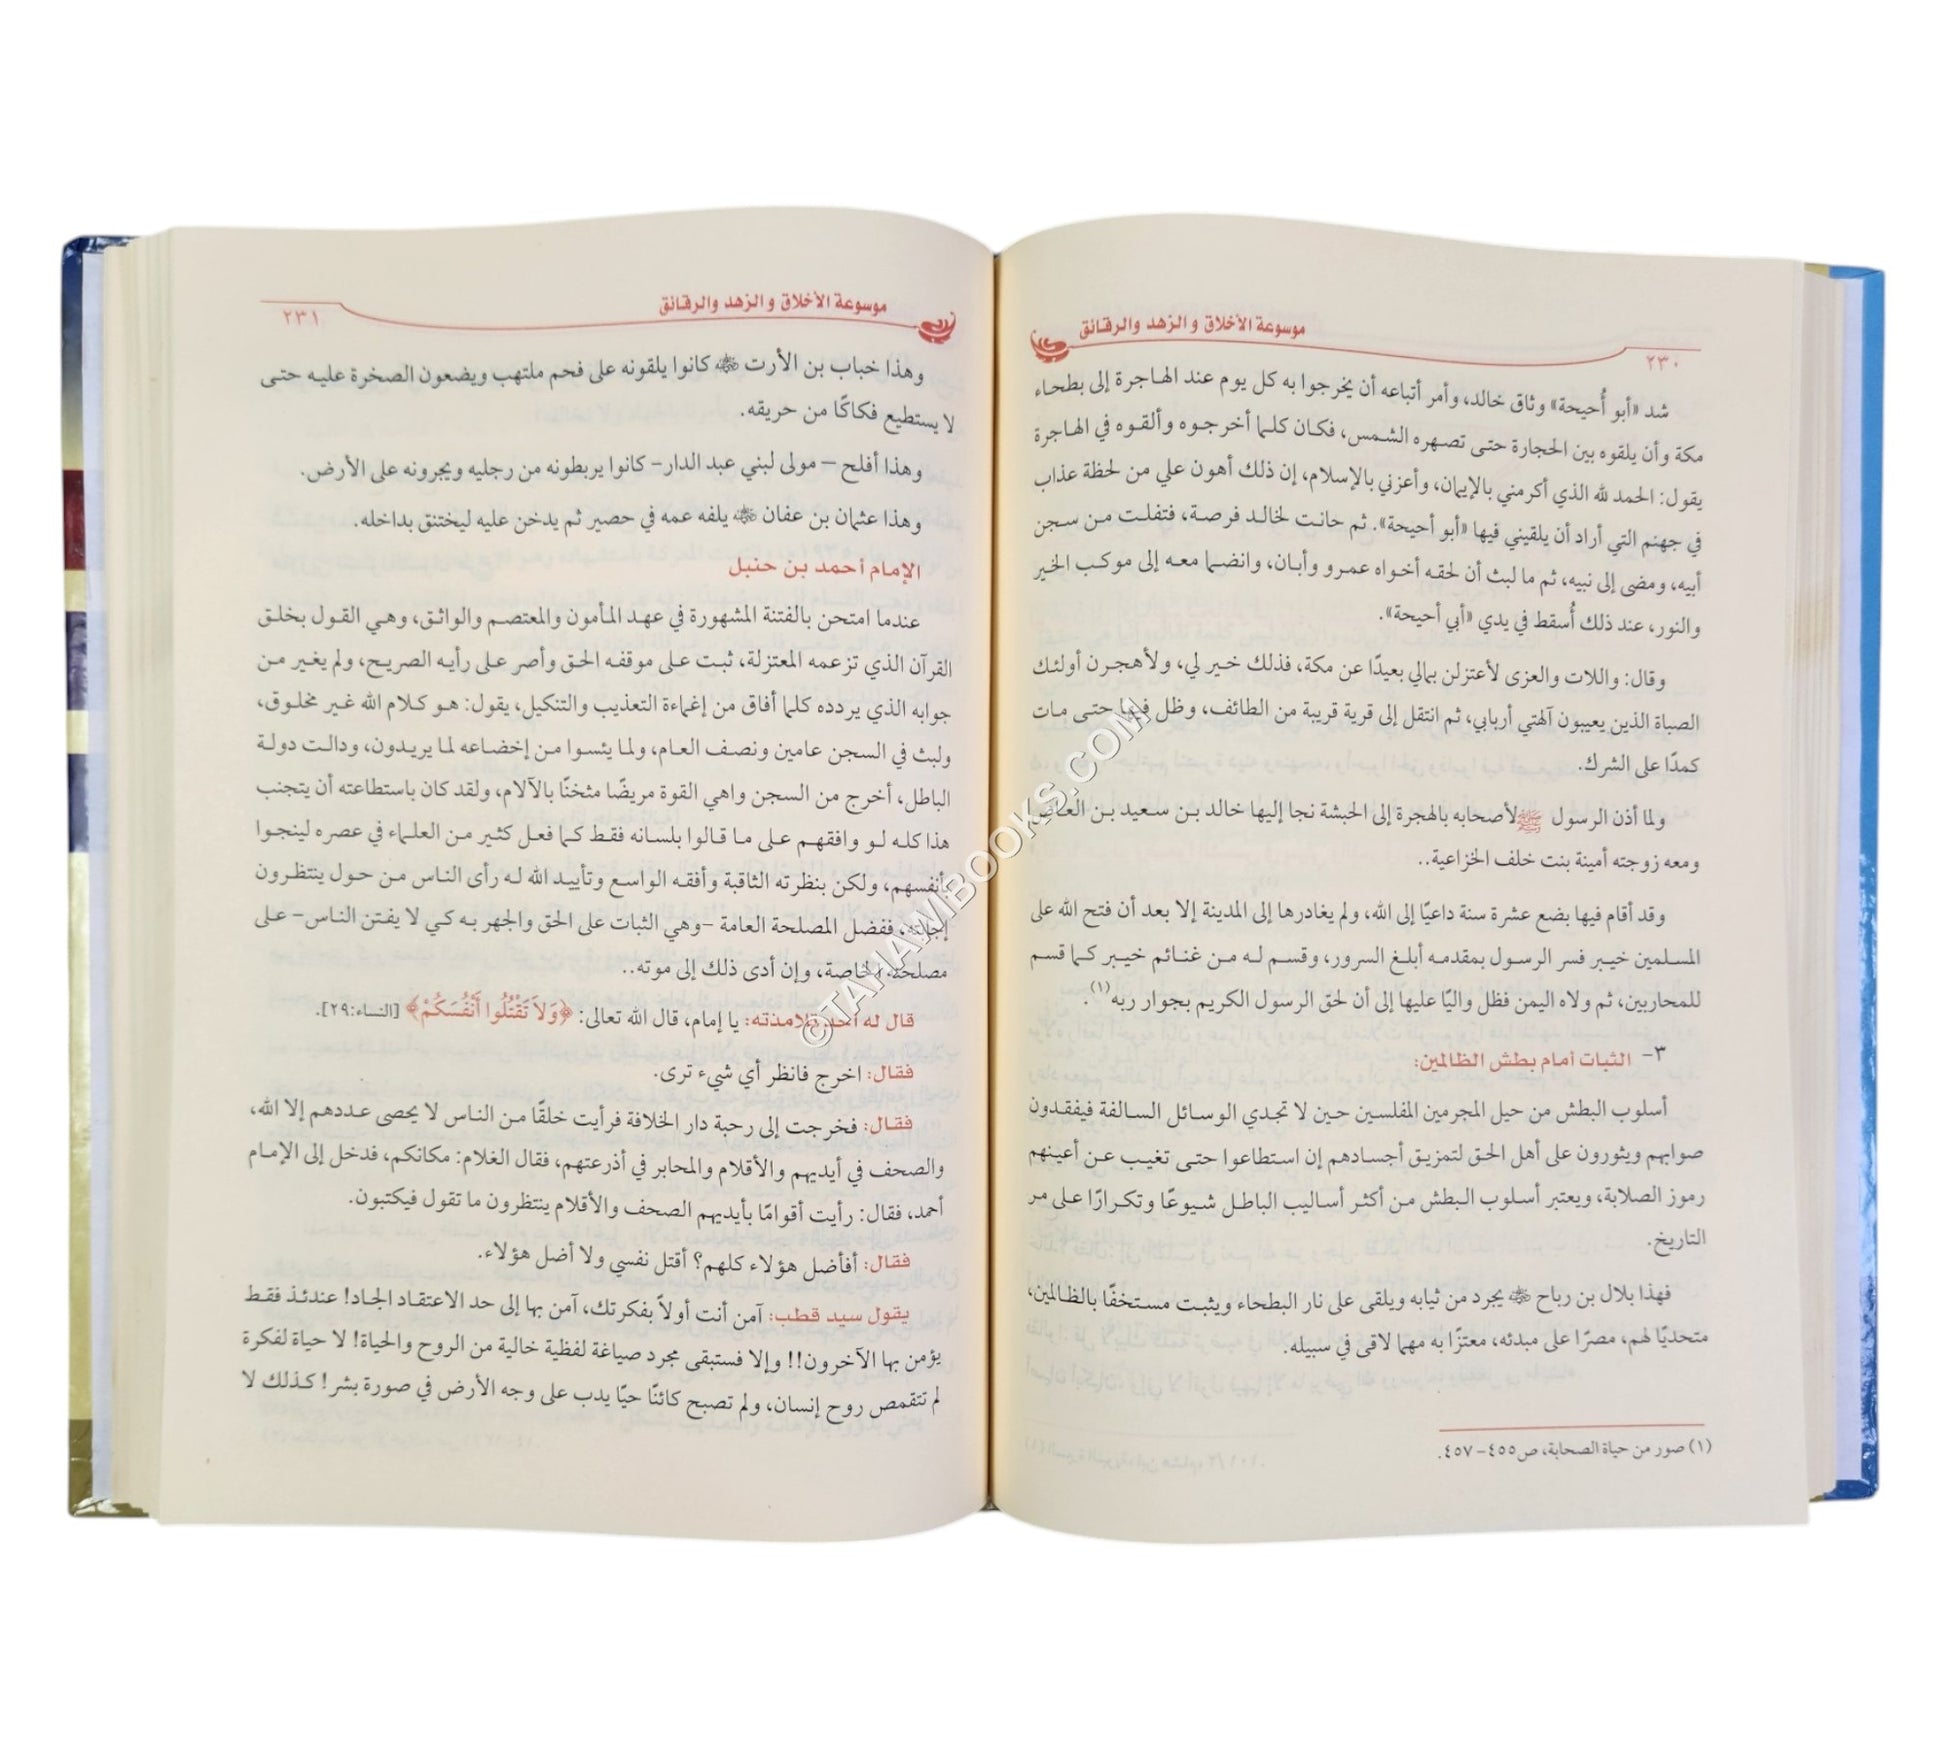 موسوعة الأخلاق والزهد والرقائق
٢٣٠
شد «أبو أُحيحة» وثاق خالد، وأمر أتباعه أن يخرجوا به كل يوم عند الهاجرة إلى بطحاء
مكة وأن يلقوه بين الحجارة حتى تصهره الشمس، فكان كلما أخرجوه وألقوه في الهاجرة
يقول: الحمد لله الذي أكرمني بالإيمان، وأعزني بالإسلام، إن ذلك أهون علي من لحظة عذاب
في جهنم التي أراد أن يلقيني فيها «أبو أحيحة». ثم حانت لخالد فرصة، فتفلت من سجن
أبيه، ومضى إلى نبيه، ثم ما لبث أن لحقه أخواه عمرو وأبان، وانضما معه إلى موكب الخير
والنور، عند ذلك أُسقط في يدي «أبي أحيحة».
وقال: واللات والعزى لأعتزلن بمالي بعيدًا عن مكة، فذلك خير لي، ولأهجرن أولئك
الصباة الذين يعيبون آلهتي أربابي، ثم انتقل إلى قرية قريبة من الطائف، وظل فيها حتى مات
كمدًا على الشرك.
ولما أذن الرسول ﷺ لأصحابه بالهجرة إلى الحبشة نجا إليها خالد بن سعيد بن العاص
ومعه زوجته أمينة بنت خلف الخزاعية..
وقد أقام فيها بضع عشرة سنة داعيًا إلى الله، ولم يغادرها إلى المدينة إلا بعد أن فتح الله على
المسلمين خيبر فسر الرسول بمقدمه أبلغ السرور، وقسم له من غنائم خيبر كما قسم
للمحاربين، ثم ولاه اليمن فظل واليًا عليها إلى أن لحق الرسول الكريم بجوار ربه(١).
٣- الثبات أمام بطش الظالمين:
أسلوب البطش من حيل المجرمين المفلسين حين لا تجدي الوسائل السالفة فيفقدون
صوابهم ويثورون على أهل الحق لتمزيق أجسادهم إن استطاعوا حتى تغيب عن أعينهم
رموز الصلابة، ويعتبر أسلوب البطش من أكثر أساليب الباطل شيوعًا وتكرارًا على مر
التاريخ.
فهذا بلال بن رباح ﵁ يجرد من ثيابه ويلقى على نار البطحاء ويثبت مستخفًا بالظالمين،
متحديًا لهم، مصرًا على مبدئه، معتزًا به مهما لاقى في سبيله.
(١) صور من حياة الصحابة، ص٤٥٥-٤٥٧.
موسوعة الأخلاق والزهد والرقائق
٢٣١
وهذا خباب بن الأرت ﵁ كانوا يلقونه على فحم ملتهب ويضعون الصخرة عليه حتى
لا يستطيع فكاكًا من حريقه.
وهذا أفلح – مولى لبني عبد الدار– كانوا يربطونه من رجليه ويجرونه على الأرض.
وهذا عثمان بن عفان ﵁ يلفه عمه في حصير ثم يدخن عليه ليختنق بداخله.
الإمام أحمد بن حنبل
عندما امتحن بالفتنة المشهورة في عهد المأمون والمعتصم والواثق، وهي القول بخلق
القرآن الذي تزعمه المعتزلة، ثبت على موقفه الحق وأصر على رأيه الصريح، ولم يغير من
جوابه الذي يردده كلما أفاق من إغماءة التعذيب والتنكيل، يقول: هو كلام الله غير مخلوق،
ولبث في السجن عامين ونصف العام، ولما يئسوا من إخضاعه لما يريدون، ودالت دولة
الباطل، أخرج من السجن واهي القوة مريضًا مثخنًا بالآلام، ولقد كان باستطاعته أن يتجنب
هذا كله لو وافقهم على ما قالوا بلسانه فقط كما فعل كثير من العلماء في عصره لينجوا
بأنفسهم، ولكن بنظرته الثاقبة وأفقه الواسع وتأييد الله له رأى الناس من حول ينتظرون
إجابته، ففضل المصلحة العامة –وهي الثبات على الحق والجهر به كي لا يفتن الناس– على
مصلحته الخاصة، وإن أدى ذلك إلى موته..
قال له أحد تلامذته: يا إمام، قال الله تعالى: ﴿وَلاَ تَقْتُلُوا أَنْفُسَكُمْ﴾ [النساء:٢٩].
فقال: اخرج فانظر أي شيء ترى.
فقال: فخرجت إلى رحبة دار الخلافة فرأيت خلقًا من الناس لا يحصى عددهم إلا الله،
والصحف في أيديهم والأقلام والمحابر في أذرعتهم، فقال الغلام: مكانكم، فدخل إلى الإمام
أحمد، فقال: رأيت أقوامًا بأيديهم الصحف والأقلام ينتظرون ما تقول فيكتبون.
فقال: أفأضل هؤلاء كلهم؟ أقتل نفسي ولا أضل هؤلاء.
يقول سيد قطب: آمن أنت أولاً بفكرتك، آمن بها إلى حد الاعتقاد الجاد! عندئذ فقط
يؤمن بها الآخرون!! وإلا فستبقى مجرد صياغة لفظية خالية من الروح والحياة! لا حياة لفكرة
لم تتقمص روح إنسان، ولم تصبح كائنًا حيًا يدب على وجه الأرض في صورة بشر! كذلك لا
©TAHAWIBOOKS.COM